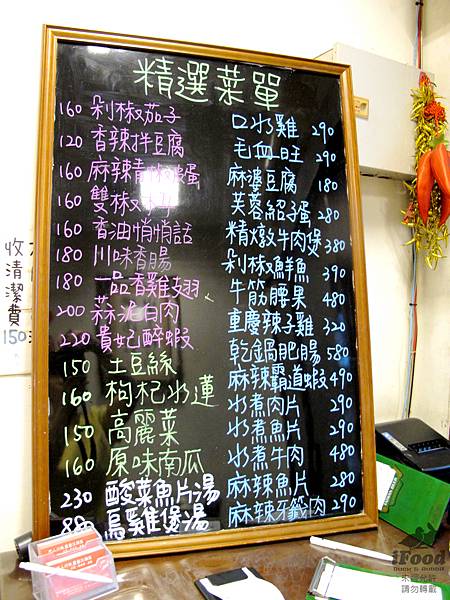 精選菜單
160 剁椒茄子
120 香辣拌豆腐
160 麻辣青 蛋
160 雙椒 子
160 香油悄悄話
180 川味香腸
180 一品香雞翅
200 蒜泥白肉
220 貴妃醉蝦
150 土豆絲
160 枸杞水蓮
150 高麗菜
160 原味南瓜
230 酸菜魚片湯
880 烏雞煲湯
口水雞 290
毛血旺 290
麻婆豆腐 180
芙蓉紹子蛋 280
精燉牛肉煲 380
剁椒鮮魚 390
牛筋腰果 480
重慶辣子雞 320
乾鍋肥腸 580
麻辣霸道蝦 490
水煮肉片 290
水煮魚片 290
水煮牛肉 480
麻辣魚片 280
麻辣牙籤肉 290
收
清
潔
費
150
iFood
未經允許
請勿轉載